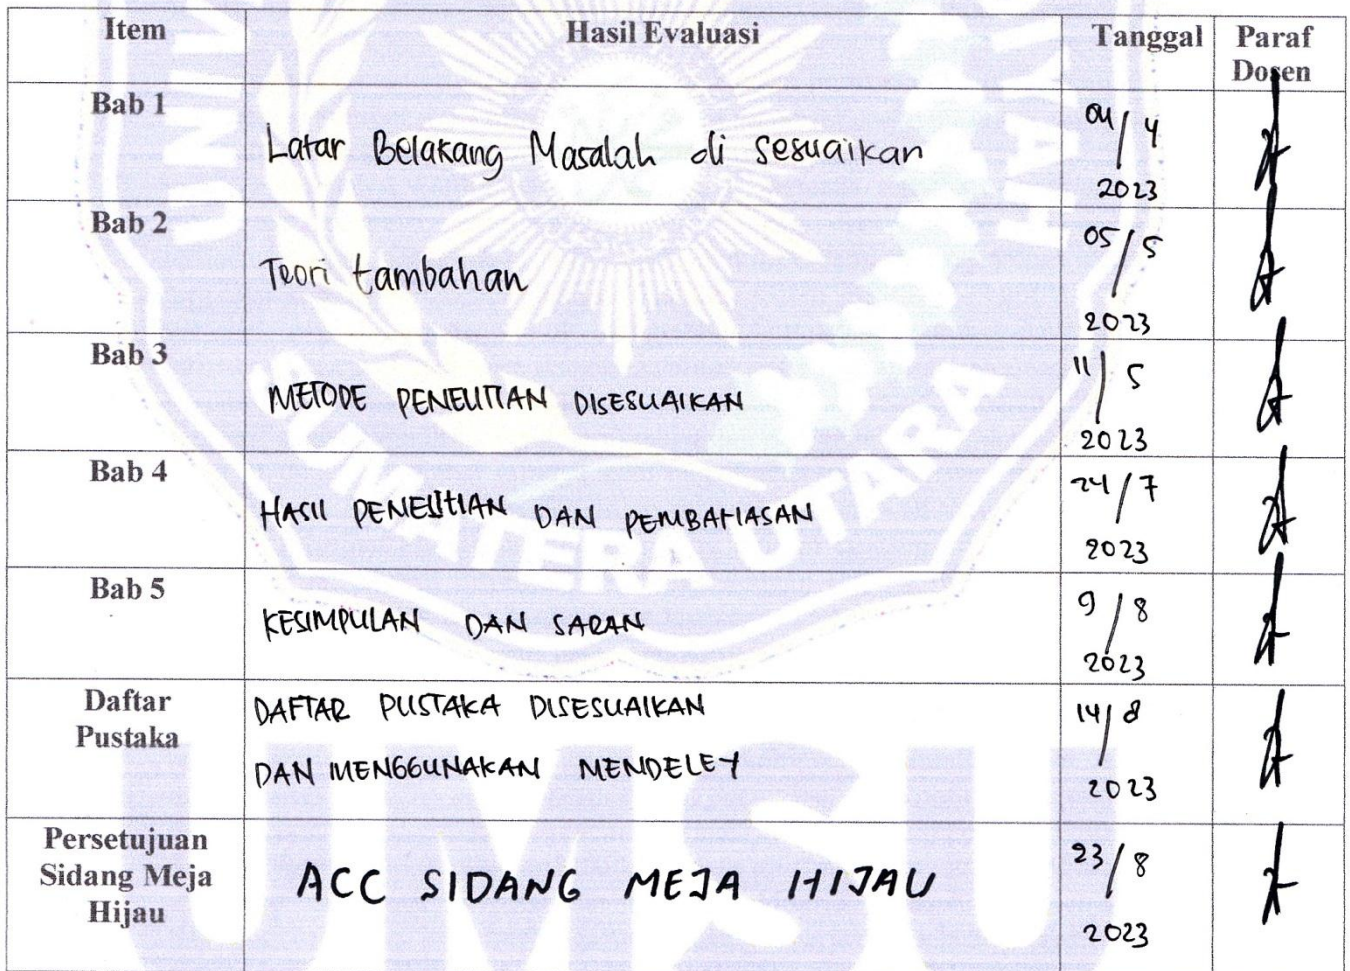 Item Hasil Evaluasi Tanggal Paraf
Dosen
Bab 1
Latar Belakang Masalah di sesuaikan
04/4
2023
Bab 2
Teori tambahan
05/5
2023
Bab 3
METODE PENELITIAN DISESUAIKAN
11/5
2023
Bab 4
HASIL PENELITIAN DAN PEMBAHASAN
24/7
2023
Bab 5
KESIMPULAN DAN SARAN
9/8
2023
Daftar
Pustaka
DAFTAR PUSTAKA DISESUAIKAN
DAN MENGGUNAKAN MENDELEY
14/8
2023
Persetujuan
Sidang Meja
Hijau
ACC SIDANG MEJA HIJAU
23/8
2023
SUMATERA UTARA
UMSU